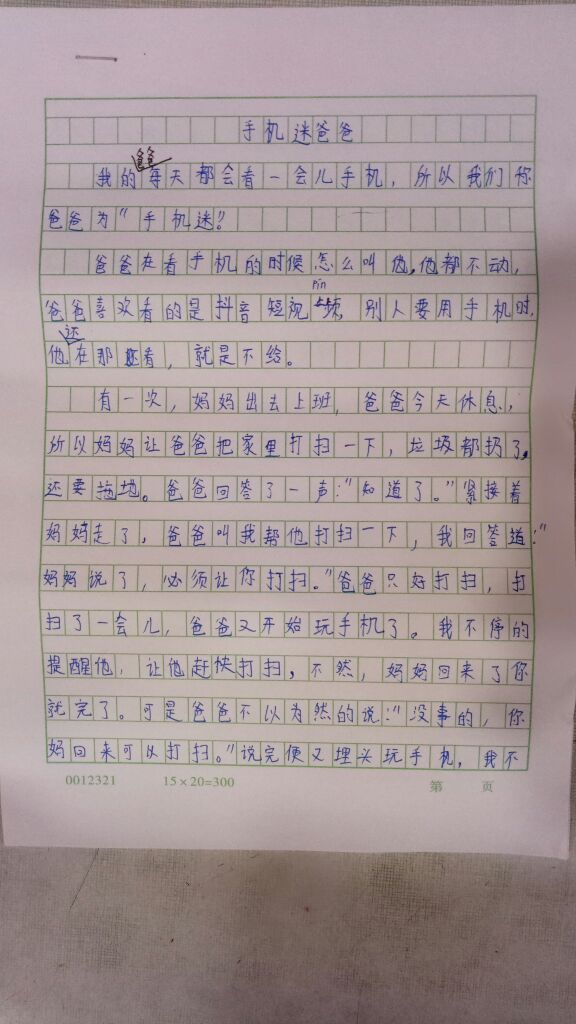 手机迷爸爸
我的爸爸每天都会看一会儿手机，所以我们你
爸爸为“手机迷”！
爸爸在看手机的时候怎么叫他，他都不动，
爸爸喜欢看的是抖音短视pin频，别人要用手机时，
他还在那看，就是不给。
有一次，妈妈出去上班，爸爸今天休息，
所以妈妈让爸爸把家里打扫一下，垃圾都扔了，
还要拖地。爸爸回答了一声：“知道了。”紧接着
妈妈走了，爸爸叫我帮他打扫一下，我回答道：“
妈妈说了，必须让你打扫。”爸爸只好打扫，打
扫了一会儿，爸爸又开始玩手机了。我不停的
提醒他，让他赶快打扫，不然，妈妈回来了你
就完了。可是爸爸不以为然的说：“没事的，你
妈回来可以打扫。”说完便又埋头玩手机，我不
0012321 15×20=300 第 页